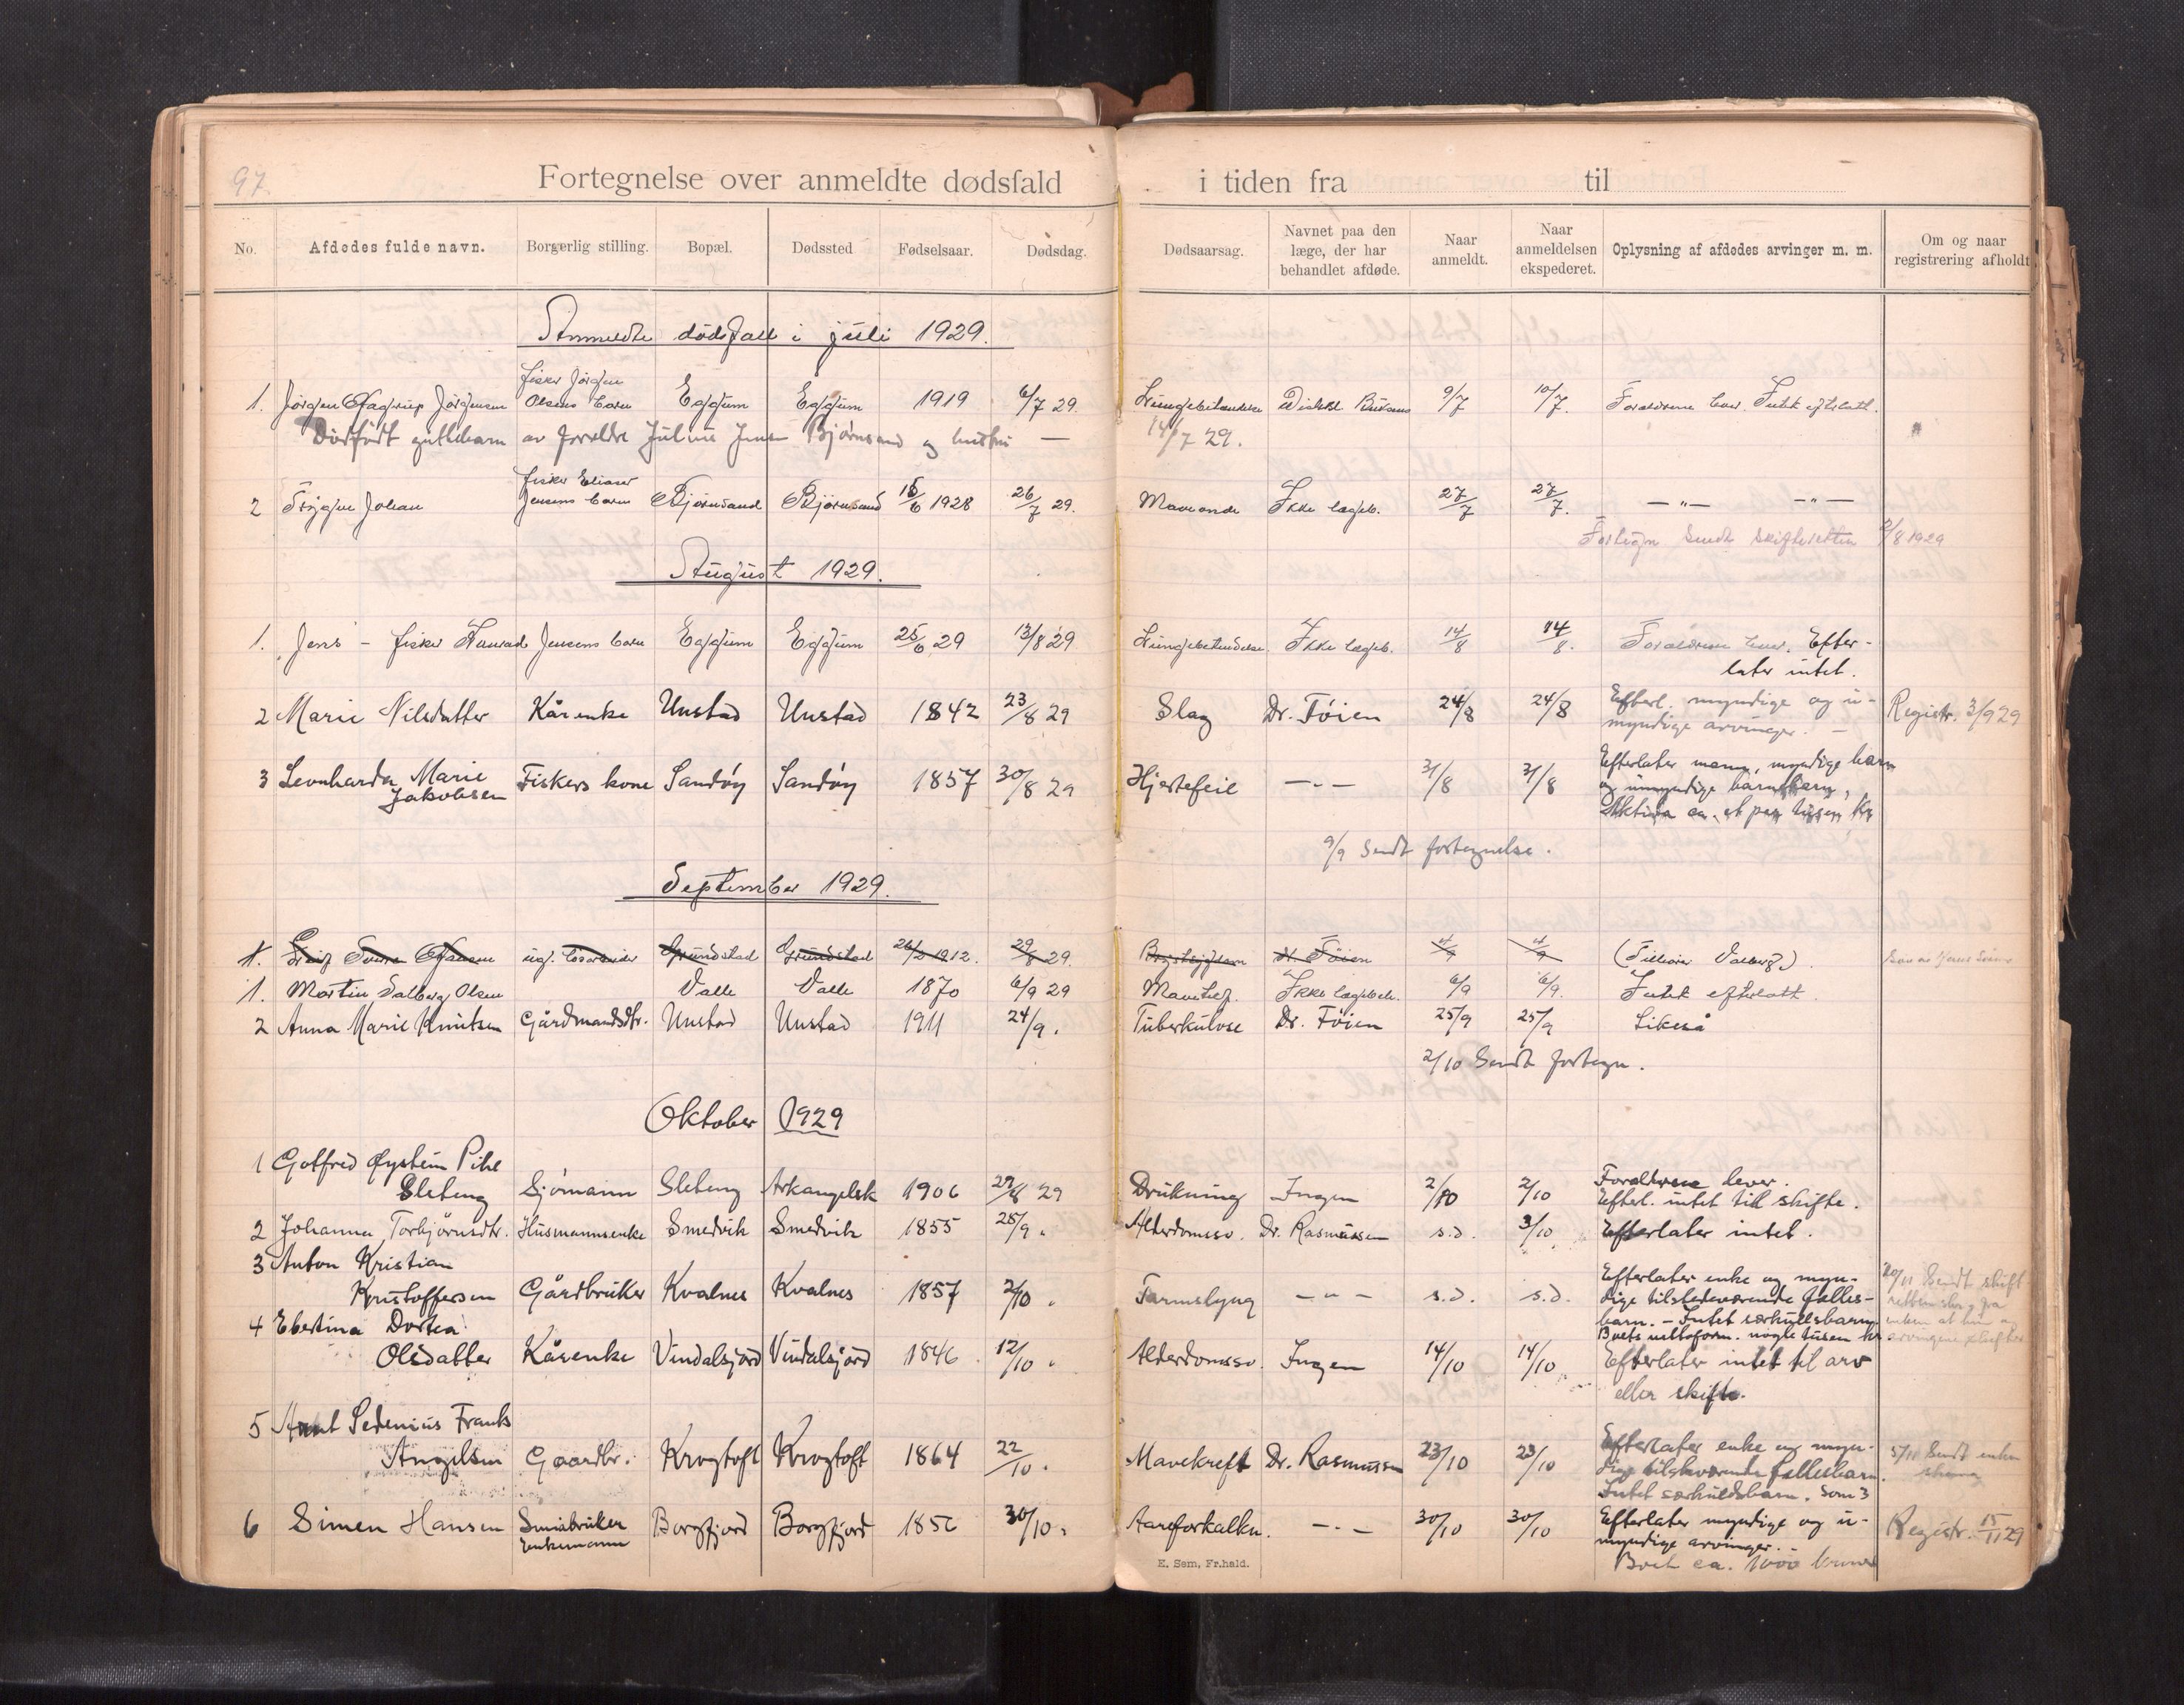 97.
Fortegnelse over anmeldte dødsfald i tiden fra til
No. Afdødes fulde navn. Borgerlig stilling. Bopæl. Dødssted Fødselsaar. Dødsdag. Dødsaarsag. Navnet paa den læge, der har behandlet afdøde. Naar anmeldt. Naar anmeldelsen ekspederet. Oplysning af afdødes arvinger m. m. Om og naar registrering afholdt
Anmeldte dødsfall i juli 1929.
fisker Jörgen
1. Jörgen Jörgensen Olsens barn Eggum Eggum 1919 6/7 29. Lungebetændelse 9/7 10/7. Foreldrene lever. Intet efterlatt.
Dødfødt guttebarn av foreldre Julius Jensen Bjørnsand og hustru — 14/7 29.
fisker Eliaser
2 Trygve Johan Jensens barn Bjørnsand Bjørnsand 16/6 1928 26/7 29. Maveonde Ikke lægeb. 27/7 27/7. —„— —„—
Fortegn sendt skifteretten 2/8 1929
August 1929.
1. Jens – fisker Jensens barn Eggum Eggum 25/6 29 13/8 29. Lungebetendelse. Ikke lægeb. 14/8 14/8. Foreldrene lever. Efter-
later intet.
2 Marie Nilsdatter Kårenke Unstad Unstad 1842 23/8 29 Slag Dr. Föien 24/8 24/8 Efterl. myndige og u- Registr. 3/9 29
myndige arvinger. —
3 Leonharda Marie Fiskers kone Sandöy Sandöy 1857 30/8 29 Hjertefeil —„— 31/8 31/8 Efterlater mann, myndige barn
Jakobsen og umyndige barnebarn,
Aktiva ca. et par tusen kr
9/9 Sendt fortegnelse.
September 1929.
1. Hansen ugf. Grundstad Grundstad 26/2 1912. 29/8 29. dr. Föien (Tilhörer Valberg.)
1. Martin Valberg Olsen Valle Valle 1870 6/9 29 Ikke lægebeh. 6/9 6/9. Intet efterlatt.
2 Anna Marie Knutsen Gårdmandsdtr. Unstad Unstad 1911 24/9. Tuberkulose Dr. Föien 25/9 25/9 Likeså
2/10 Sendt fortegn.
Oktober 1929
1 Gotfred Øystein Pihl
Slebeng Sjömann Slebeng Arkangelsk 1906 29/8 29 Drukning Ingen 2/10 2/10 Foreldrene lever.
Efterl. intet til skifte.
2 Johanna Torbjörnsdtr. Husmannsenke Smedvik Smedvik 1855 25/9 „ Alderdomssv. Dr. Rasmussen s.d. 3/10 Efterlater intet.
3 Anton Kristian
Kristoffersen Gårdbruker Kvalnes Kvalnes 1857 2/10 „ Tarmslyng —„— s.d. s.d. Efterlater enke og myn-
dige tilstedeværende felles-
barn. – Intet særkullsbarn.
Boets nettoform. nogle tusen kr
20/11 Sendt skift
4 Ebertina Dortea
Olsdatter Kårenke Vindalsjord Vindalsjord 1846 12/10 „ Alderdomssv. Ingen 14/10 14/10 Efterlater intet til arv
eller skifte.
5 Arnt Sedenius Frants
Angelsen Gaardbr. Krogtoft Krogtoft 1864 22/10. Mavekreft Dr. Rasmussen 23/10 23/10 Efterlater enke og myn-
dige tilstedeværende fellesbarn.
Intet særkuldsbarn. Som 3
5/11 Sendt enken
6 Simen Hansen Småbruker Borgfjord Borgfjord 30/10. Aareforkalkn. —„— 30/10 30/10 Efterlater myndige og u- Registr. 15/11 29
Enkemann myndige arvinger. –
Boet ca. 1000 kroner
E. Sem, Fr.hald.